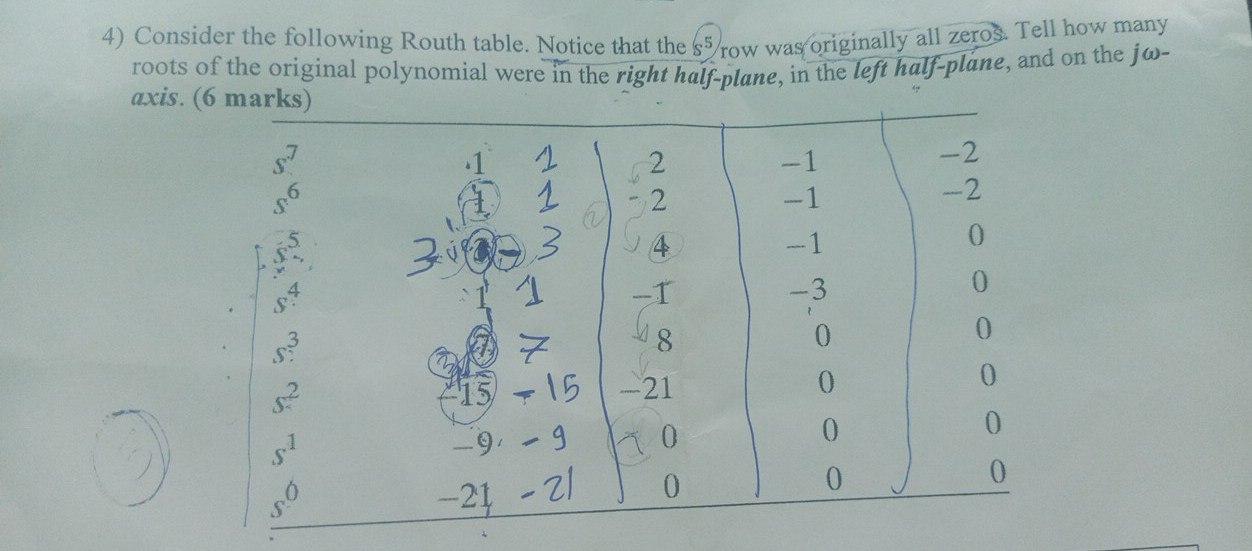 4) Consider the following Routh table. Notice that the s⁵ row was originally all zeros. Tell how many
roots of the original polynomial were in the right half-plane, in the left half-plane, and on the jω-
axis. (6 marks)
s⁷ 1 1 2 −1 −2
s⁶ 1 1 2 −1 −2
s⁵ 3 3 4 −1 0
s⁴ 1 1 −1 −3 0
s³ 7 7 8 0 0
s² −15 −15 −21 0 0
s¹ −9 −9 0 0 0
s⁰ −21 −21 0 0 0